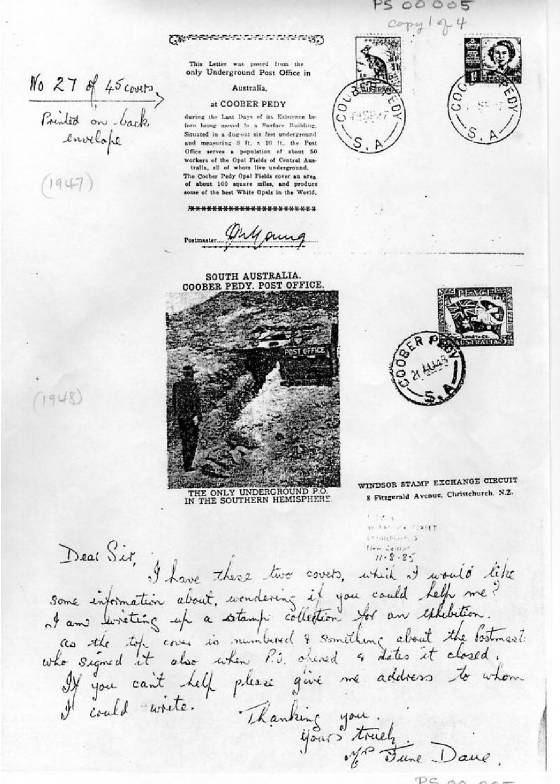 PS 00 005
copy 1 of 4
No 27 of 45 covers
Printed on back
envelope
(1947)
This Letter was posted from the
only Underground Post Office in
Australia,
at COOBER PEDY
during the Last Days of its Existence be-
fore being moved to a Surface Building.
Situated in a dug-out six feet underground
and measuring 8 ft. x 10 ft. the Post
Office serves a population of about 50
workers of the Opal Fields of Central Aus-
tralia, all of whom live underground.
The Coober Pedy Opal Fields cover an area
of about 100 square miles, and produce
some of the best White Opals in the World.
Postmaster
COOBER PEDY
S.A
COOBER PEDY
S.A
SOUTH AUSTRALIA.
COOBER PEDY. POST OFFICE.
POST OFFICE
THE ONLY UNDERGROUND P.O.
IN THE SOUTHERN HEMISPHERE.
(1948)
PEACE
AUSTRALIA
COOBER PEDY
S.A
WINDSOR STAMP EXCHANGE CIRCUIT
8 Fitzgerald Avenue, Christchurch, N.Z.
11-8-85
Dear Sir,
I have these two covers, which I would like
some information about, wondering if you could help me?
I am writing up a stamp collection for an exhibition.
as the top cover is numbered & something about the Postmast
who signed it also when P.O. opened & dates it closed.
If you can't help please give me address to whom
I could write.
Thanking you.
Yours truely.
June
PS 00 005